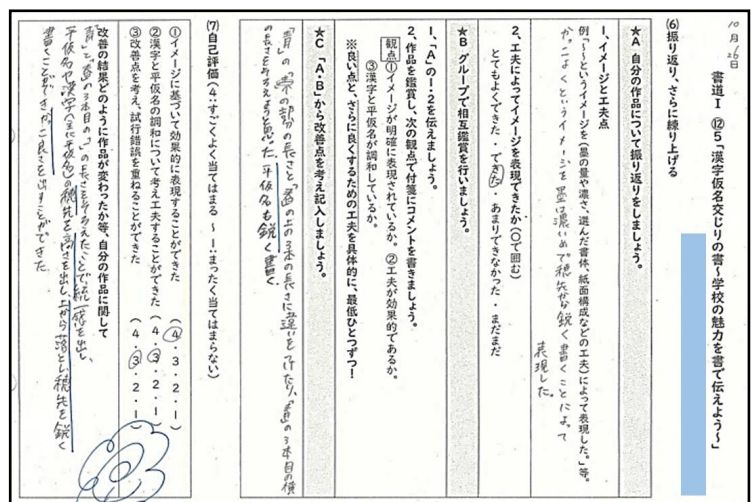 10月26日
書道Ⅰ ⑫5「漢字仮名交じりの書～学校の魅力を書で伝えよう～」
(6)振り返り、さらに練り上げる
★A 自分の作品について振り返りをしましょう。
1、イメージと工夫点
例「～～というイメージを(墨の量や濃さ、選んだ書体、紙面構成などの工夫)によって表現した。」等。
というイメージを墨は濃いめで穂先から鋭く書くことによって
表現した。
2、工夫によってイメージを表現できたか(〇で囲む)
とてもよくできた・できた・あまりできなかった・まだまだ
★B グループで相互鑑賞を行いましょう。
1、「A」の1・2を伝えましょう。
2、作品を鑑賞し、次の観点で付箋にコメントを書きましょう。
観点 ①イメージが明確に表現されているか。 ②工夫が効果的であるか。
③漢字と平仮名が調和しているか。
※良い点と、さらに良くするための工夫を具体的に、最低ひとつずつ!
★C 「A・B」から改善点を考え記入しましょう。
の長さと「青」の上の3本の長さに違いをつけたり、「青」の3本目の横
の長さを考えようと思った。平仮名も鋭く書く。
(7)自己評価(4:すごくよく当てはまる ～ 1:まったく当てはまらない)
①イメージに基づいて効果的に表現することができた (4・3・2・1)
②漢字と平仮名の調和について考え工夫することができた (4・3・2・1)
③改善点を考え、試行錯誤を重ねることができた (4・3・2・1)
改善の結果どのように作品が変わったか等、自分の作品に関して
の長さを考えたことで統一感を出し、
平仮名や漢字(主に平仮名)の穂先を高さを出し上から落とし穂先を鋭く
書くことができ、良さを出すことができた